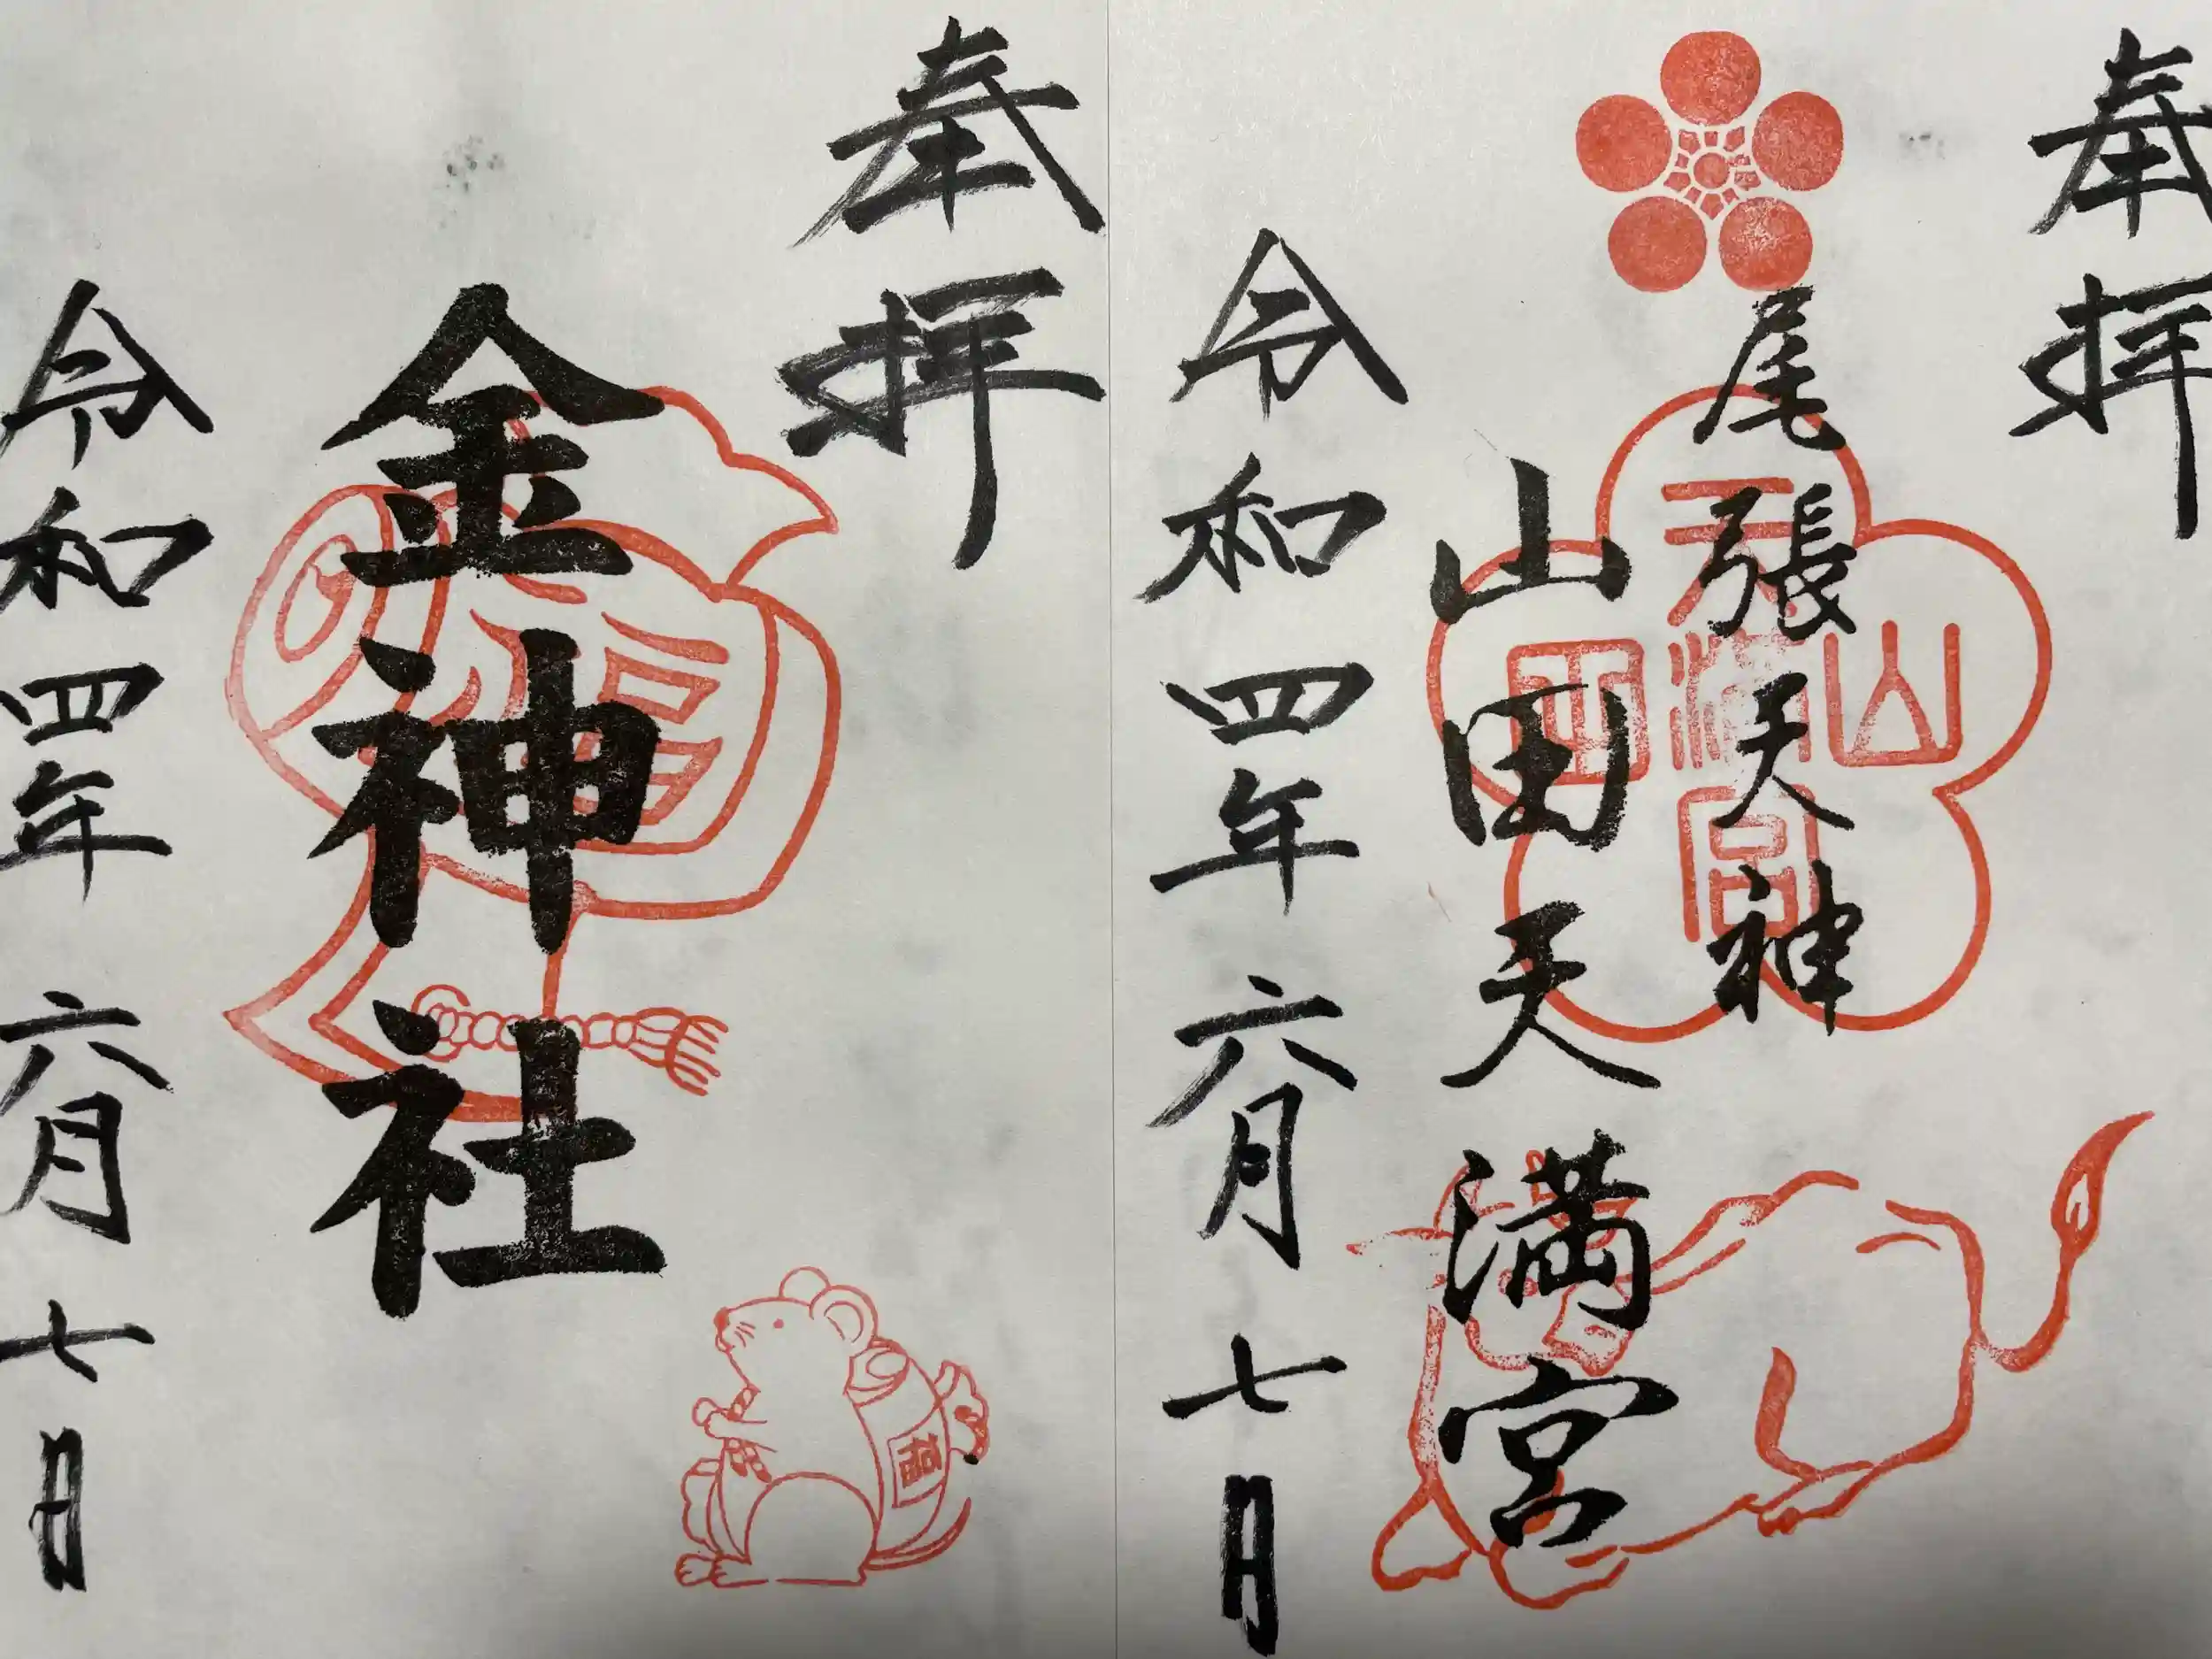 奉拝
尾張天神
山田天満宮
令和四年六月七日
山
天満宮
田
奉拝
金神社
令和四年六月七日
福
福